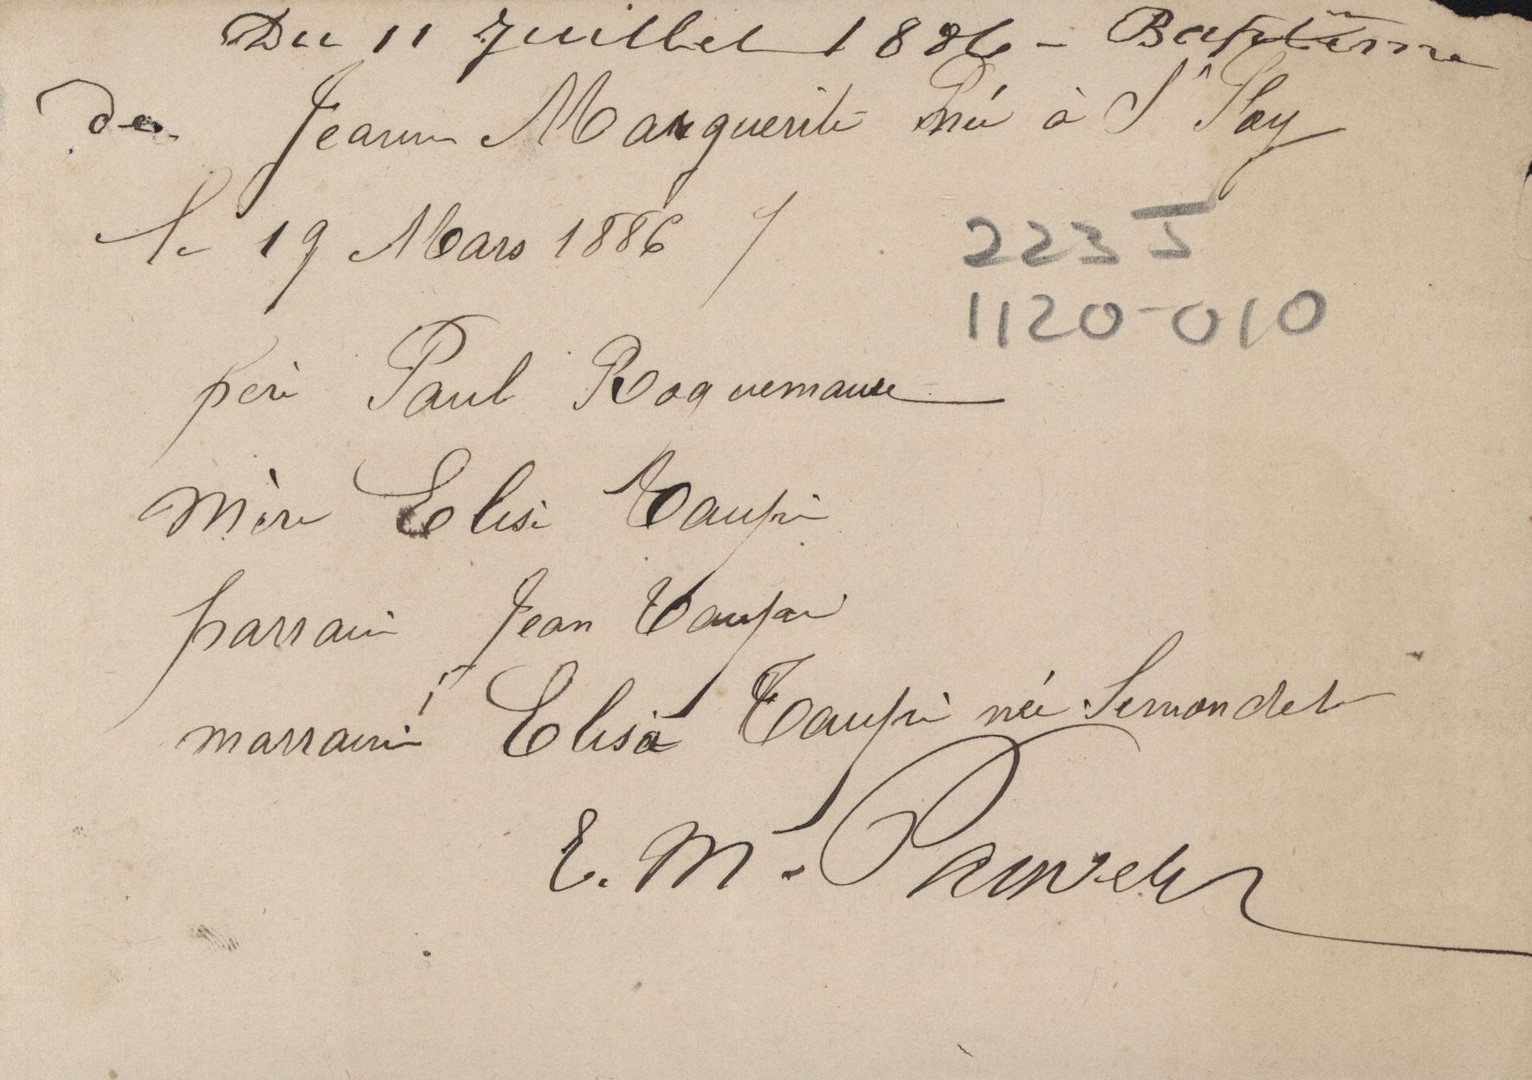 Du 11 Juillet 1886 - Baptême
de Jeanne Marguerite née à St
le 19 Mars 1886
2235
1120-010
père Paul Roquemaure
mère Elise Taupin
parrain Jean Taupin
marraine Elisa Taupin née
E. M.